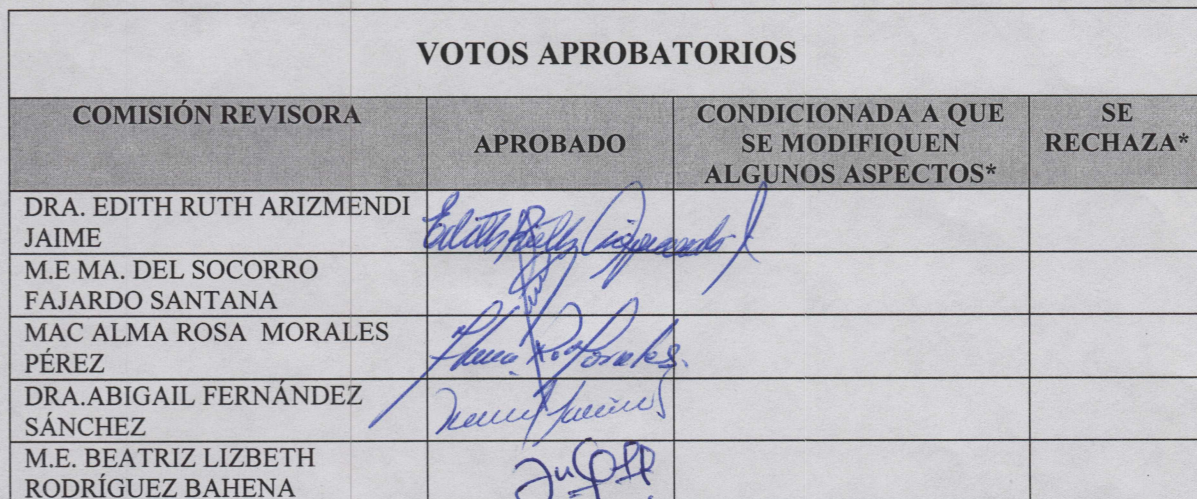 VOTOS APROBATORIOS
COMISIÓN REVISORA
APROBADO
CONDICIONADA A QUE
SE MODIFIQUEN
ALGUNOS ASPECTOS*
SE
RECHAZA*
DRA. EDITH RUTH ARIZMENDI
JAIME
Edith Ruth Arizmendi J
M.E MA. DEL SOCORRO
FAJARDO SANTANA
MAC ALMA ROSA MORALES
PÉREZ
Alma Rosa Morales P.
DRA.ABIGAIL FERNÁNDEZ
SÁNCHEZ
M.E. BEATRIZ LIZBETH
RODRÍGUEZ BAHENA